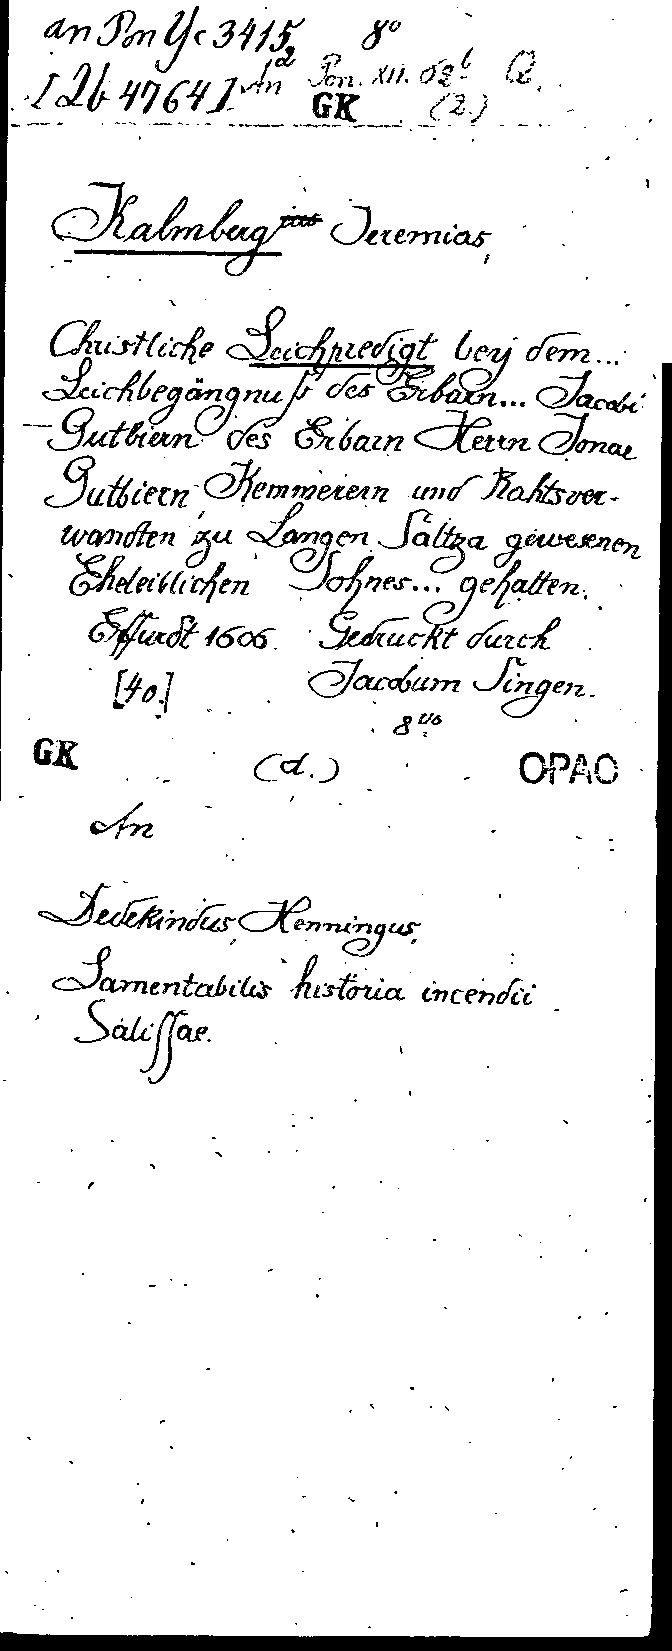 an Pon Yc 3415, 8º
2
I 2b 4764 I An Pon. XII. 62b Q.
GK (2.)
Kalmberg Jeremias,
Christliche Leichpredigt beÿ dem...
Leichbegängnuß des Erbarn... Jacobi
Gutbiern des Erbarn Herrn Jonae
Gutbiern, Kemmerern und Rahtsver-
wandten zu Langen Saltza gewesenen
Eheleiblichen Sohnes... gehalten.
Erffurdt 1606. Gedruckt durch
[40.] Jacobum Singen.
8vo
GK (d.) OPAC
An
Dedekindus, Henningus,
Lamentabilis historia incendii
Salissae.